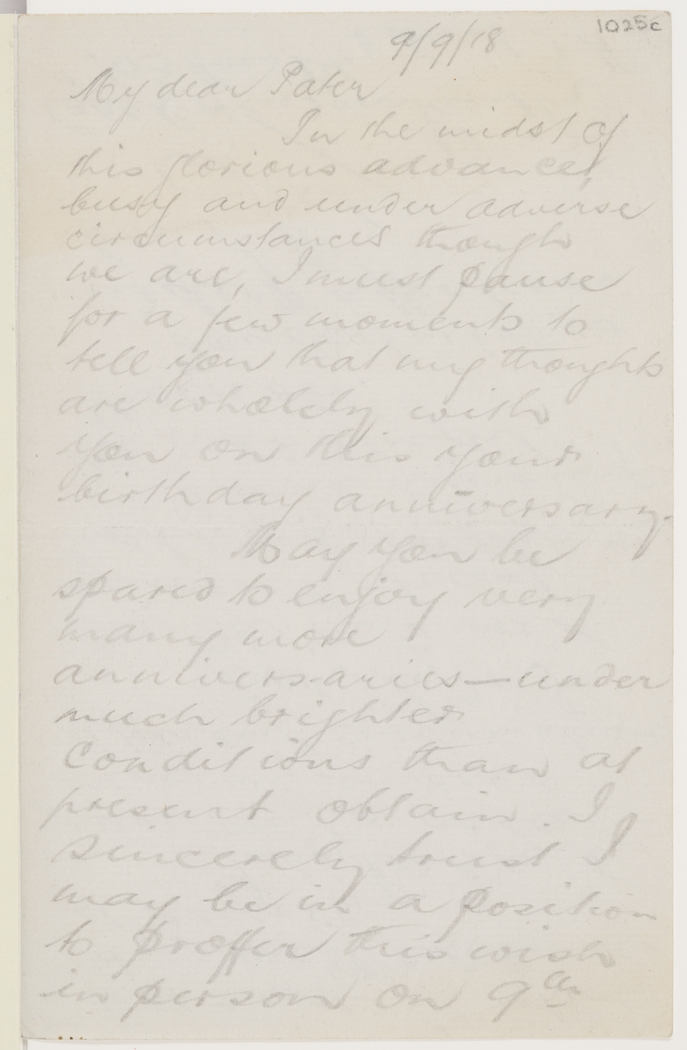 1025c
9/9/18
My dear Pater
In the midst of
this glorious advance,
busy and under adverse
circumstances though
we are, I must pause
for a few moments to
tell you that my thoughts
are wholely with
you on this your
birthday anniversary.
May you be
spared to enjoy very
many more
anniversaries—under
much brighter
conditions than at
present obtain. I
sincerely trust I
may be in a position
to proffer this wish
in person on 9th